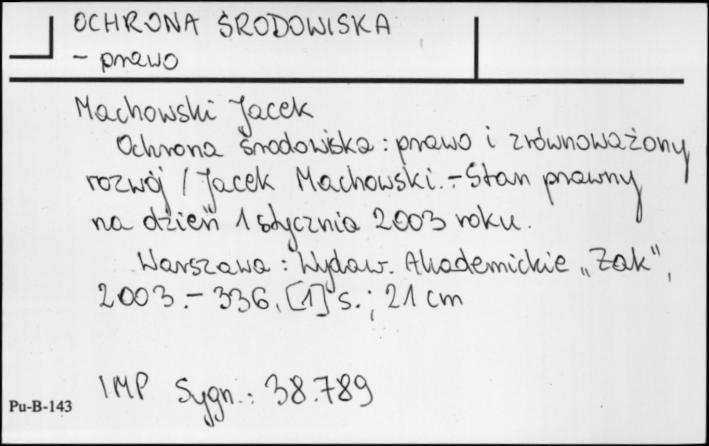 OCHRONA ŚRODOWISKA
- prawo
Machowski Jacek
Ochrona środowiska : prawo i zrównoważony
rozwój / Jacek Machowski. - Stan prawny
na dzień 1 stycznia 2003 roku.
Warszawa : Wydaw. Akademickie „Żak",
2003. - 336, [1] s. ; 21 cm
IMP Sygn.: 38.789
Pu-B-143